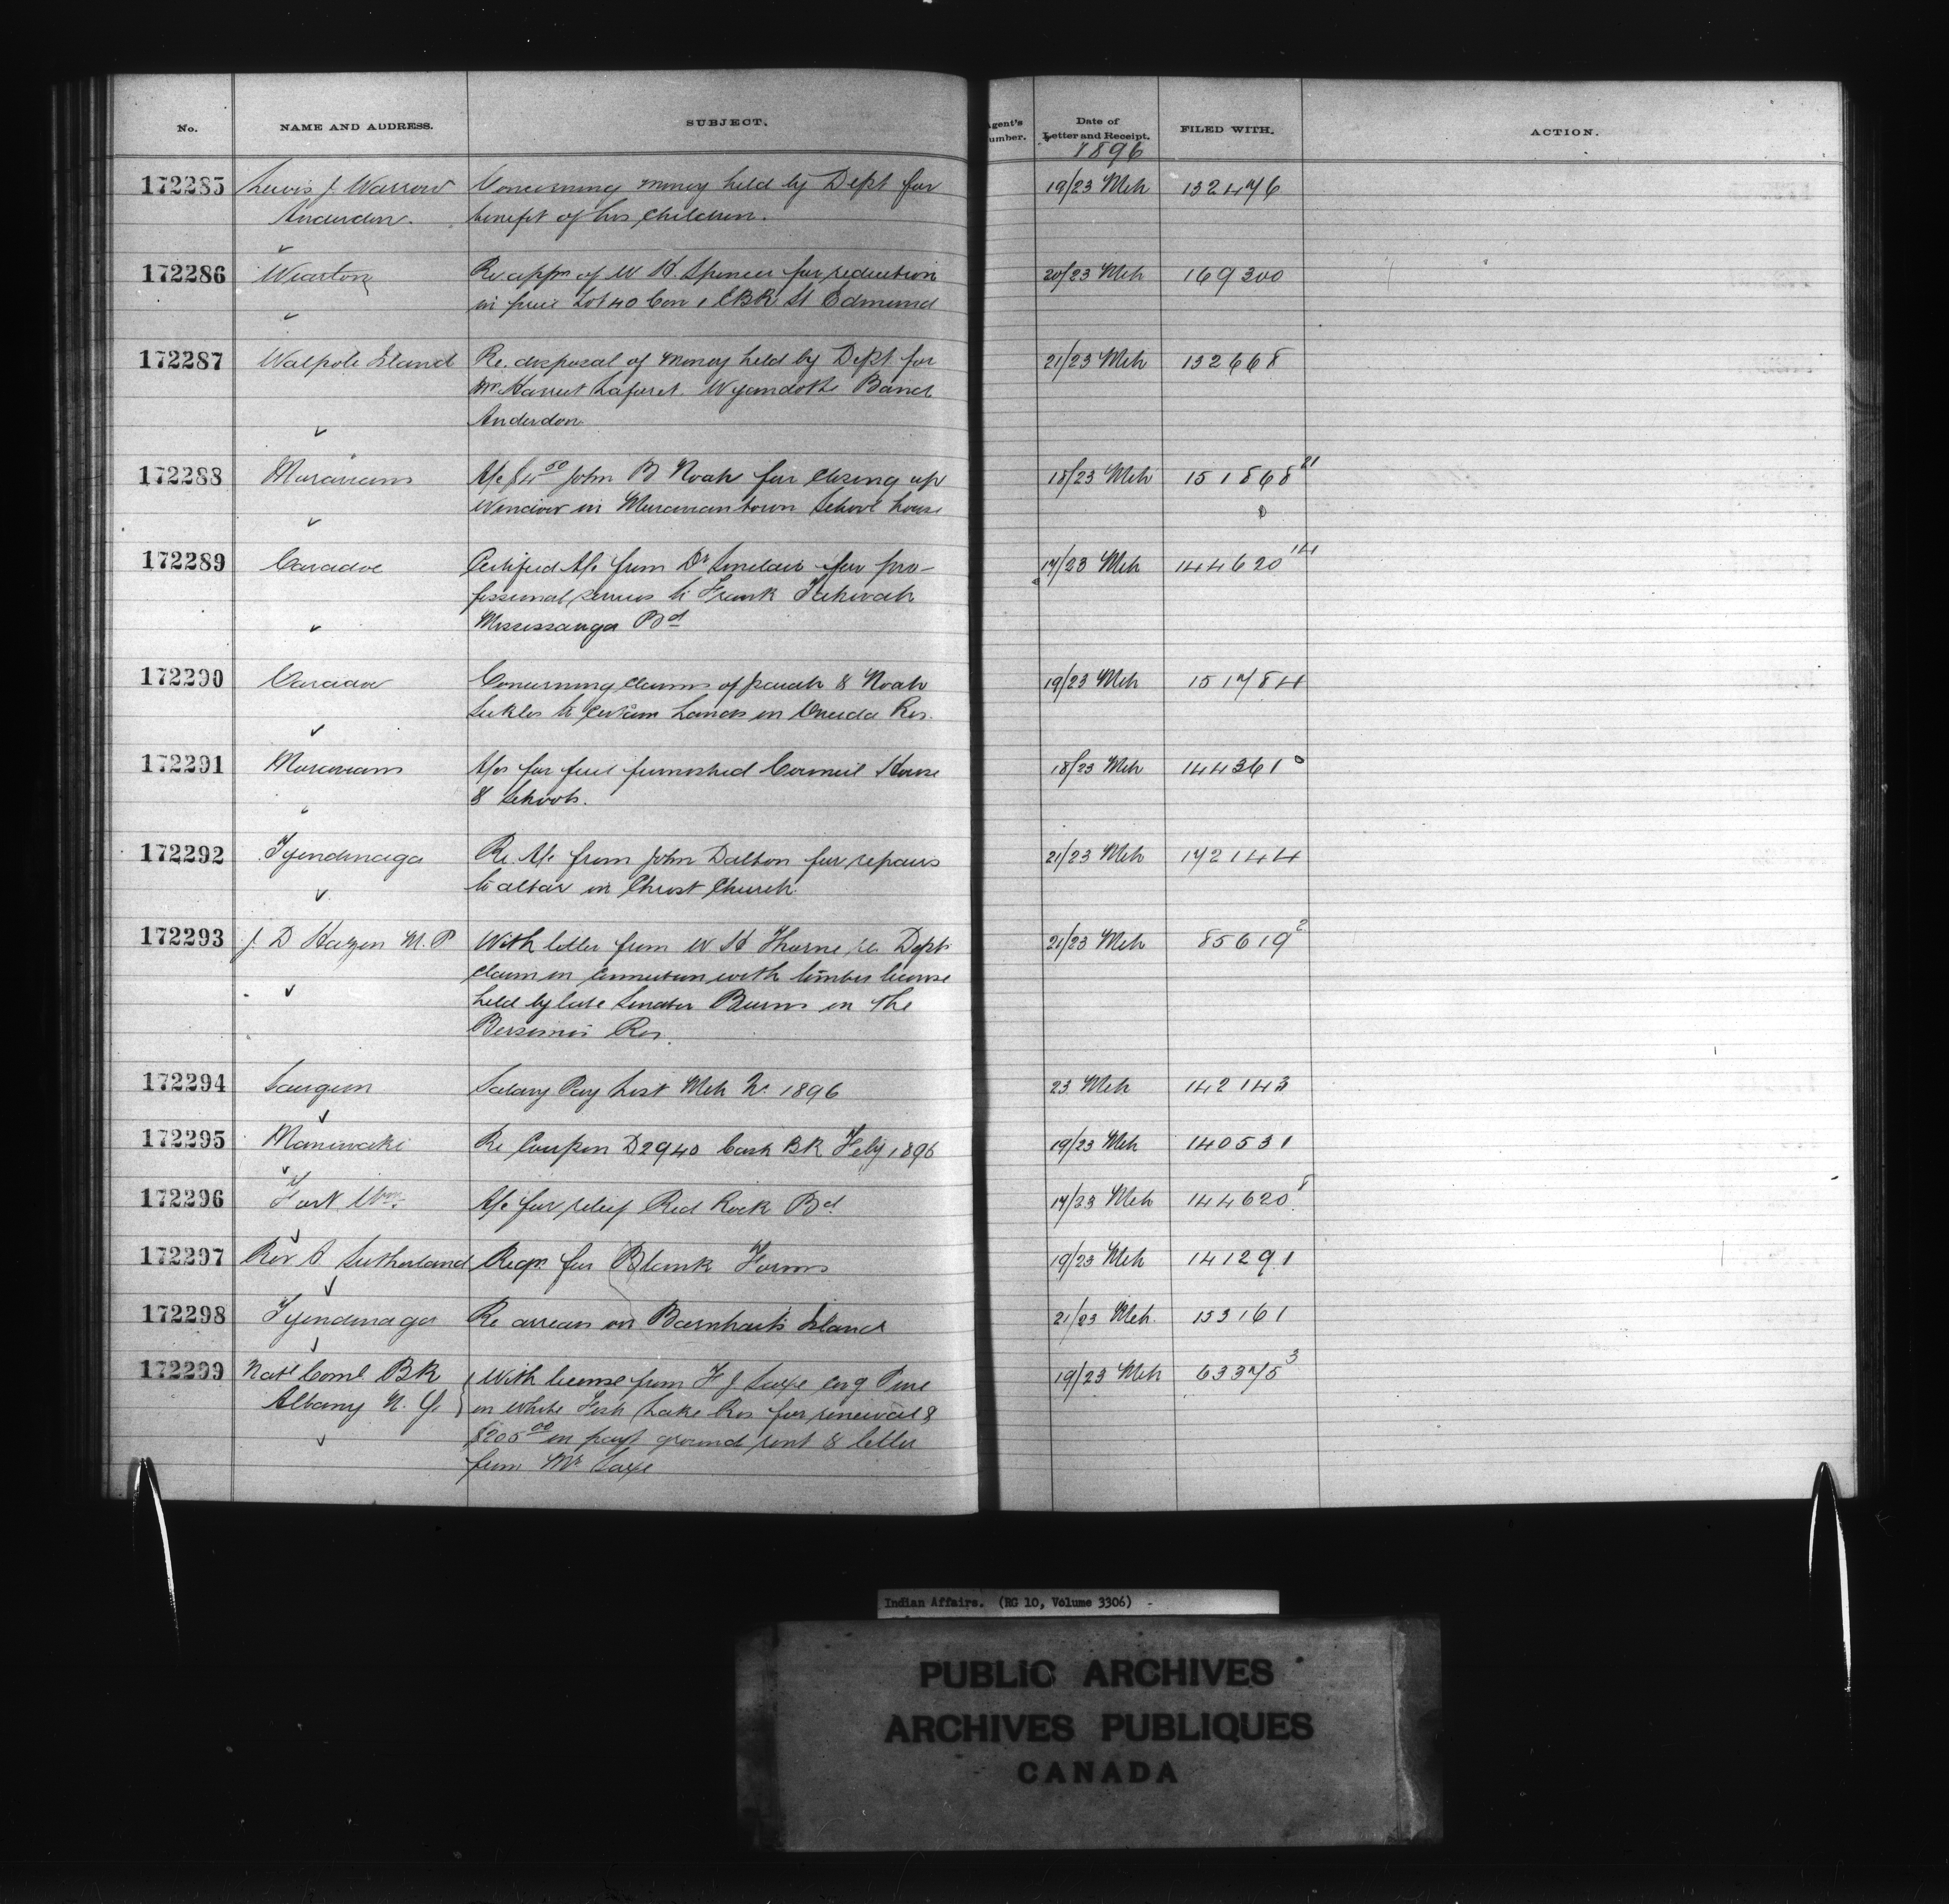 No. NAME AND ADDRESS. SUBJECT. Agent's Number. Date of Letter and Receipt. FILED WITH. ACTION.
1896
172285 Lewis J. Warrow Concerning money held by Dept for 19/23 Mch 132476
Anderdon. benefit of his children.
172286 Wiarton Re appn of W H. Spencer for reduction 20/23 Mch 169300
in price Lot 40 Con 1 EBR St Edmund
172287 Walpole Island Re. disposal of money held by Dept for 21/23 Mch 132668
Mrs Harriet Laforet. Wyandotte Band
Anderdon
172288 Moravians A/c $4 50 John B Noah for closing up 18/23 Mch 151868 21
Window in Moraviantown School house
172289 Caradoc Certified A/c from Dr Sinclair for pro- 17/23 Mch 144620 14
fessional services to Frank
Mississauga Bd
172290 Caradoc Concerning claims of & Noah 19/23 Mch 151784
Sickles to certain Lands in Oneida Res.
172291 Moravians A/cs for fuel furnished Council House 18/23 Mch 144361 0
& Schools.
172292 Tyendinaga Re A/c from John Dalton for repairs 21/23 Mch 172144
to altar in Christ Church.
172293 J. D Hazen M. P With letter from W H Thorne re Depts 21/23 Mch 85619 2
claim in connection with timber license
held by late Senator Burns in the
Bersimis Res.
172294 Saugeen Salary Pay List Mch Qr. 1896 23 Mch 142143
172295 Maniwaki Re Coupon D2940 Cash BK Feby 1896 19/23 Mch 140531
172296 Fort Wm. A/c for relief Red Rock Bd. 17/23 Mch 144620 8
172297 Rev A Sutherland Reqn for Blank Forms 19/23 Mch 141291
172298 Tyendinaga Re arrears on Barnharts Island 21/23 Mch. 153161
172299 Natl Coml BK With license from F J Saxe covg Pine 19/23 Mch 63375 3
Albany N. Y. on White Fish Lake Res for renewal &
$205 00 in payt ground rent & letter
from Mr Saxe
Indian Affairs. (RG 10, Volume 3306)
PUBLIC ARCHIVES
ARCHIVES PUBLIQUES
CANADA